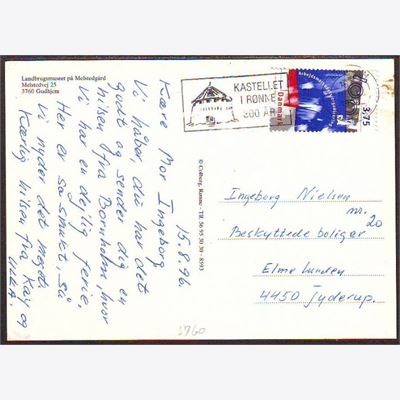 Landbrugsmuseet på Melstedgård
Melstedvej 25
3760 Gudhjem
15.8.96.
Kære Mor Ingeborg
Vi håber du har det
godt og sender dig en
hilsen fra Bornholm, hvor
Vi har en dejlig ferie,
Her er så smukt, så
Vi nyder det meget
Kærlig hilsen fra Kaj og
© Colberg, Rønne - Tlf. 56 95 30 30 - 8593
KASTELLET
I RØNNE
300 ÅR
Danmark
3.75
Ingeborg Nielsen
nr. 20
Beskyttede boliger
Elme Lunden
4450 Jyderup.
3760